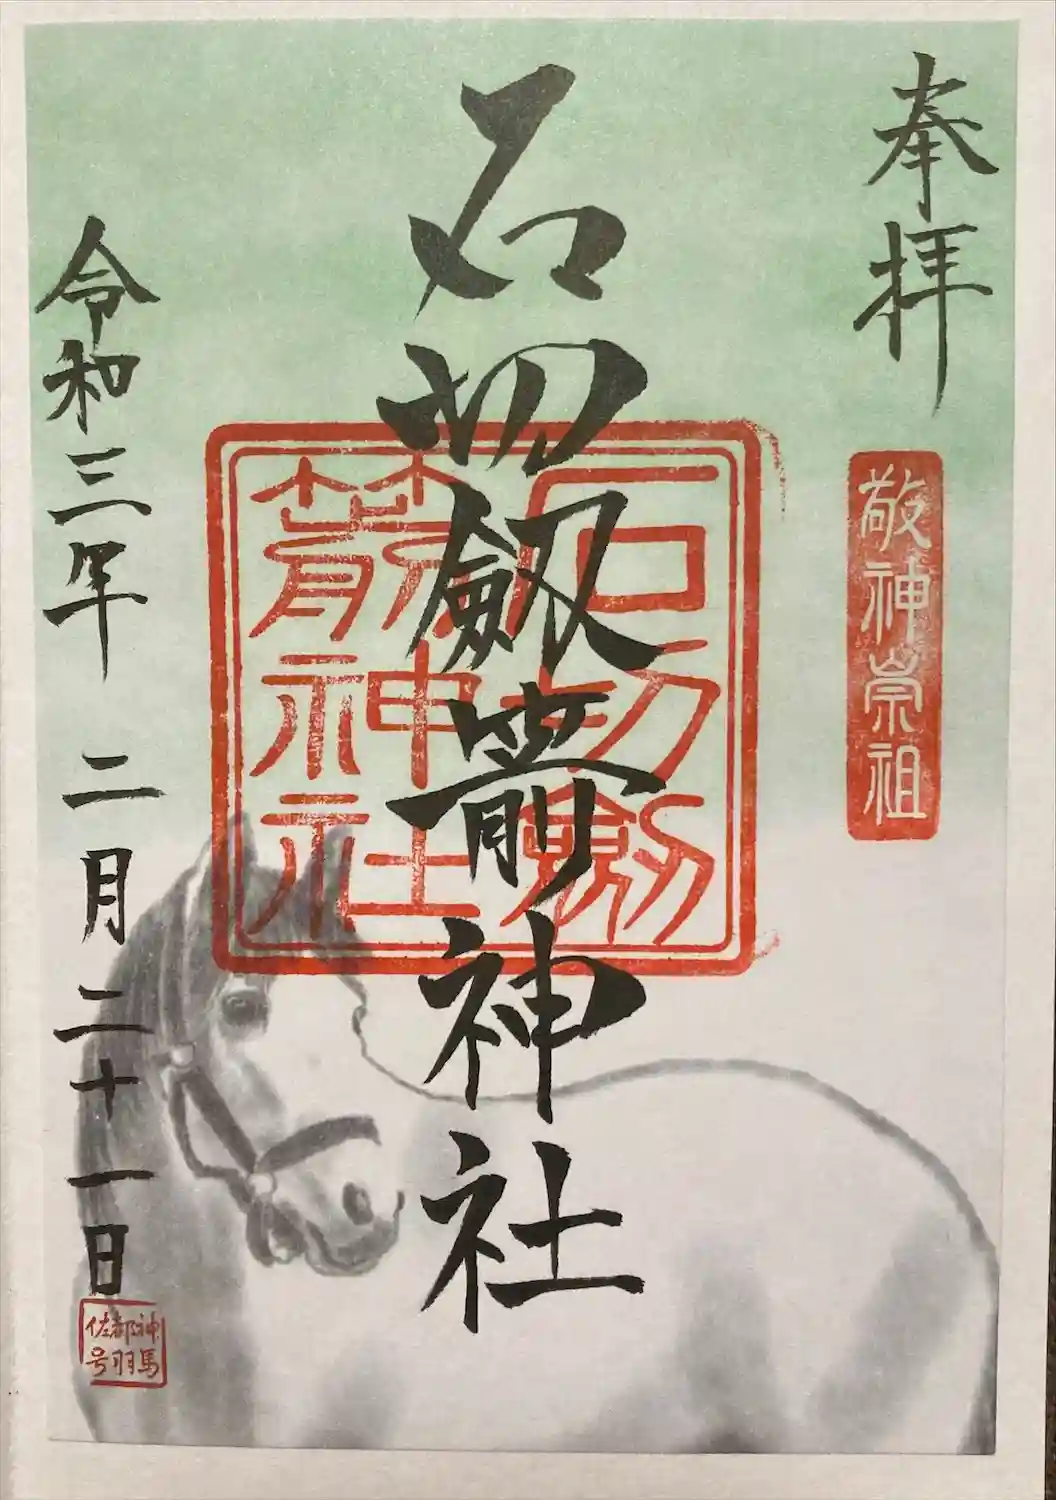 奉拝
敬神崇祖
石切劔箭神社
石切劔
箭神社
令和三年 二月二十一日
神馬
都羽
佐号